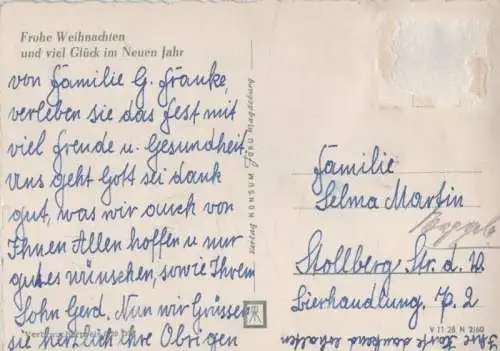 Frohe Weihnachten
und viel Glück im Neuen Jahr
von Familie G. Franke,
verleben sie das Fest mit
viel Freude u. Gesundheit.
Uns geht Gott sei dank
gut, was wir auch von
Ihnen Allen hoffen u nur
gutes wünschen, sowie Ihrem
Sohn Gerd. Nun wir Grüssen
sie herzlich Ihre Obrigen
Verlag KONSUM Magdeburg
Familie
Selma Martin
Stollberg Str. d. V.
Bierhandlung. p. 2
V 11 28 N 2160
Ihre Karte dankend erhalten